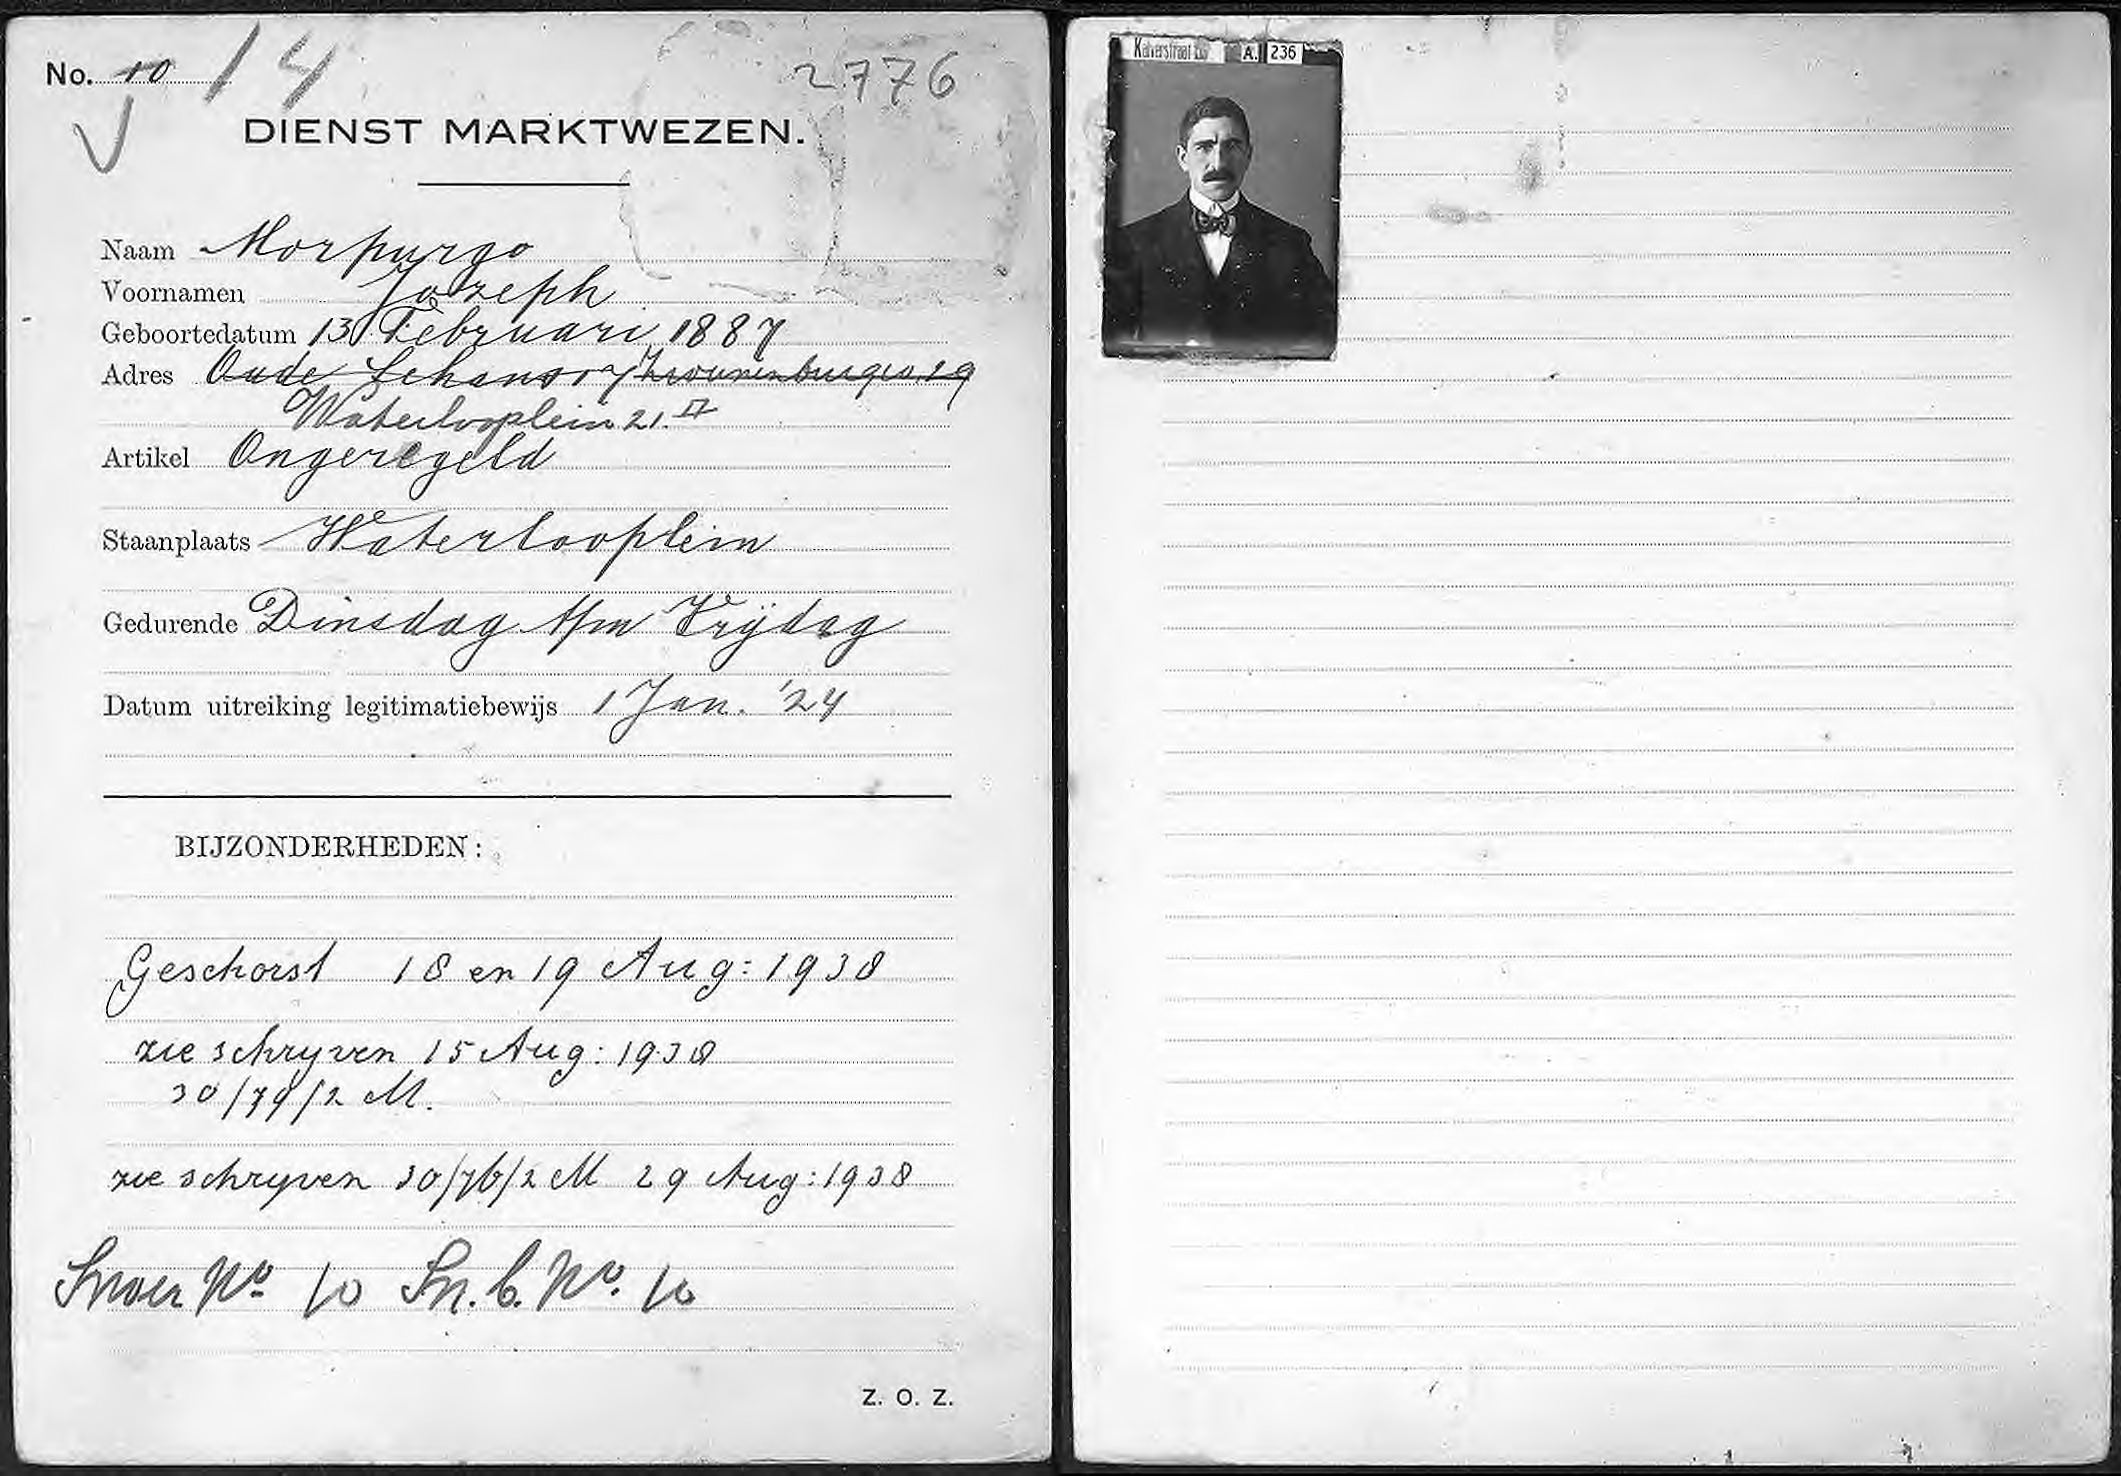 No. 10 14
2776
DIENST MARKTWEZEN.
Naam Morpurgo
Voornamen Jozeph
Geboortedatum 13 Februari 1887
Adres Oude Schans
Waterlooplein 21 II
Artikel Ongeregeld
Staanplaats Waterlooplein
Gedurende Dinsdag t/m Vrijdag
Datum uitreiking legitimatiebewijs 1 Jan. '24
BIJZONDERHEDEN:
Geschorst 18 en 19 Aug: 1938
zie schryven 15 Aug: 1938
30/79/2 M.
zie schryven 30/76/2 M 29 Aug: 1938
Snoer No. 10 Sn. C. No. 10
Z. O. Z.
Kalverstraat A. 236